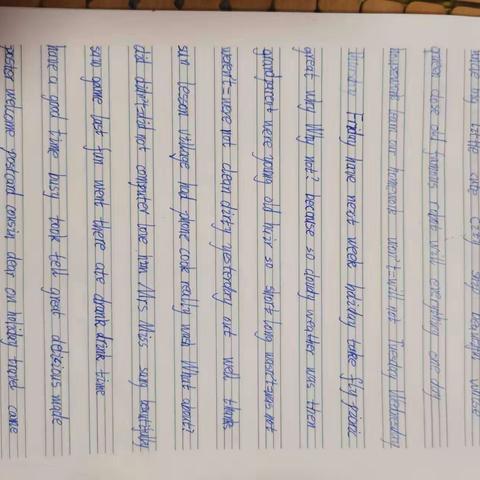 little cute city shop beautiful
queen close old famous right will everything one day
homework our won't=will not Tuesday Wednesday
Thursday Friday have next week holiday take fly picnic
great why Why not? because so cloudy weather was then
grandparent were young old hair so short long wasn't=was not
weren't=were not clean dirty yesterday out well think
sun lesson village had phone cook really wash What about?
did didn't=did not computer love him Mrs Miss say beautifully
saw game lost fun went there are drank drink time
have a good time busy took tell great delicious made
poster welcome postcard cousin dear on holiday travel come